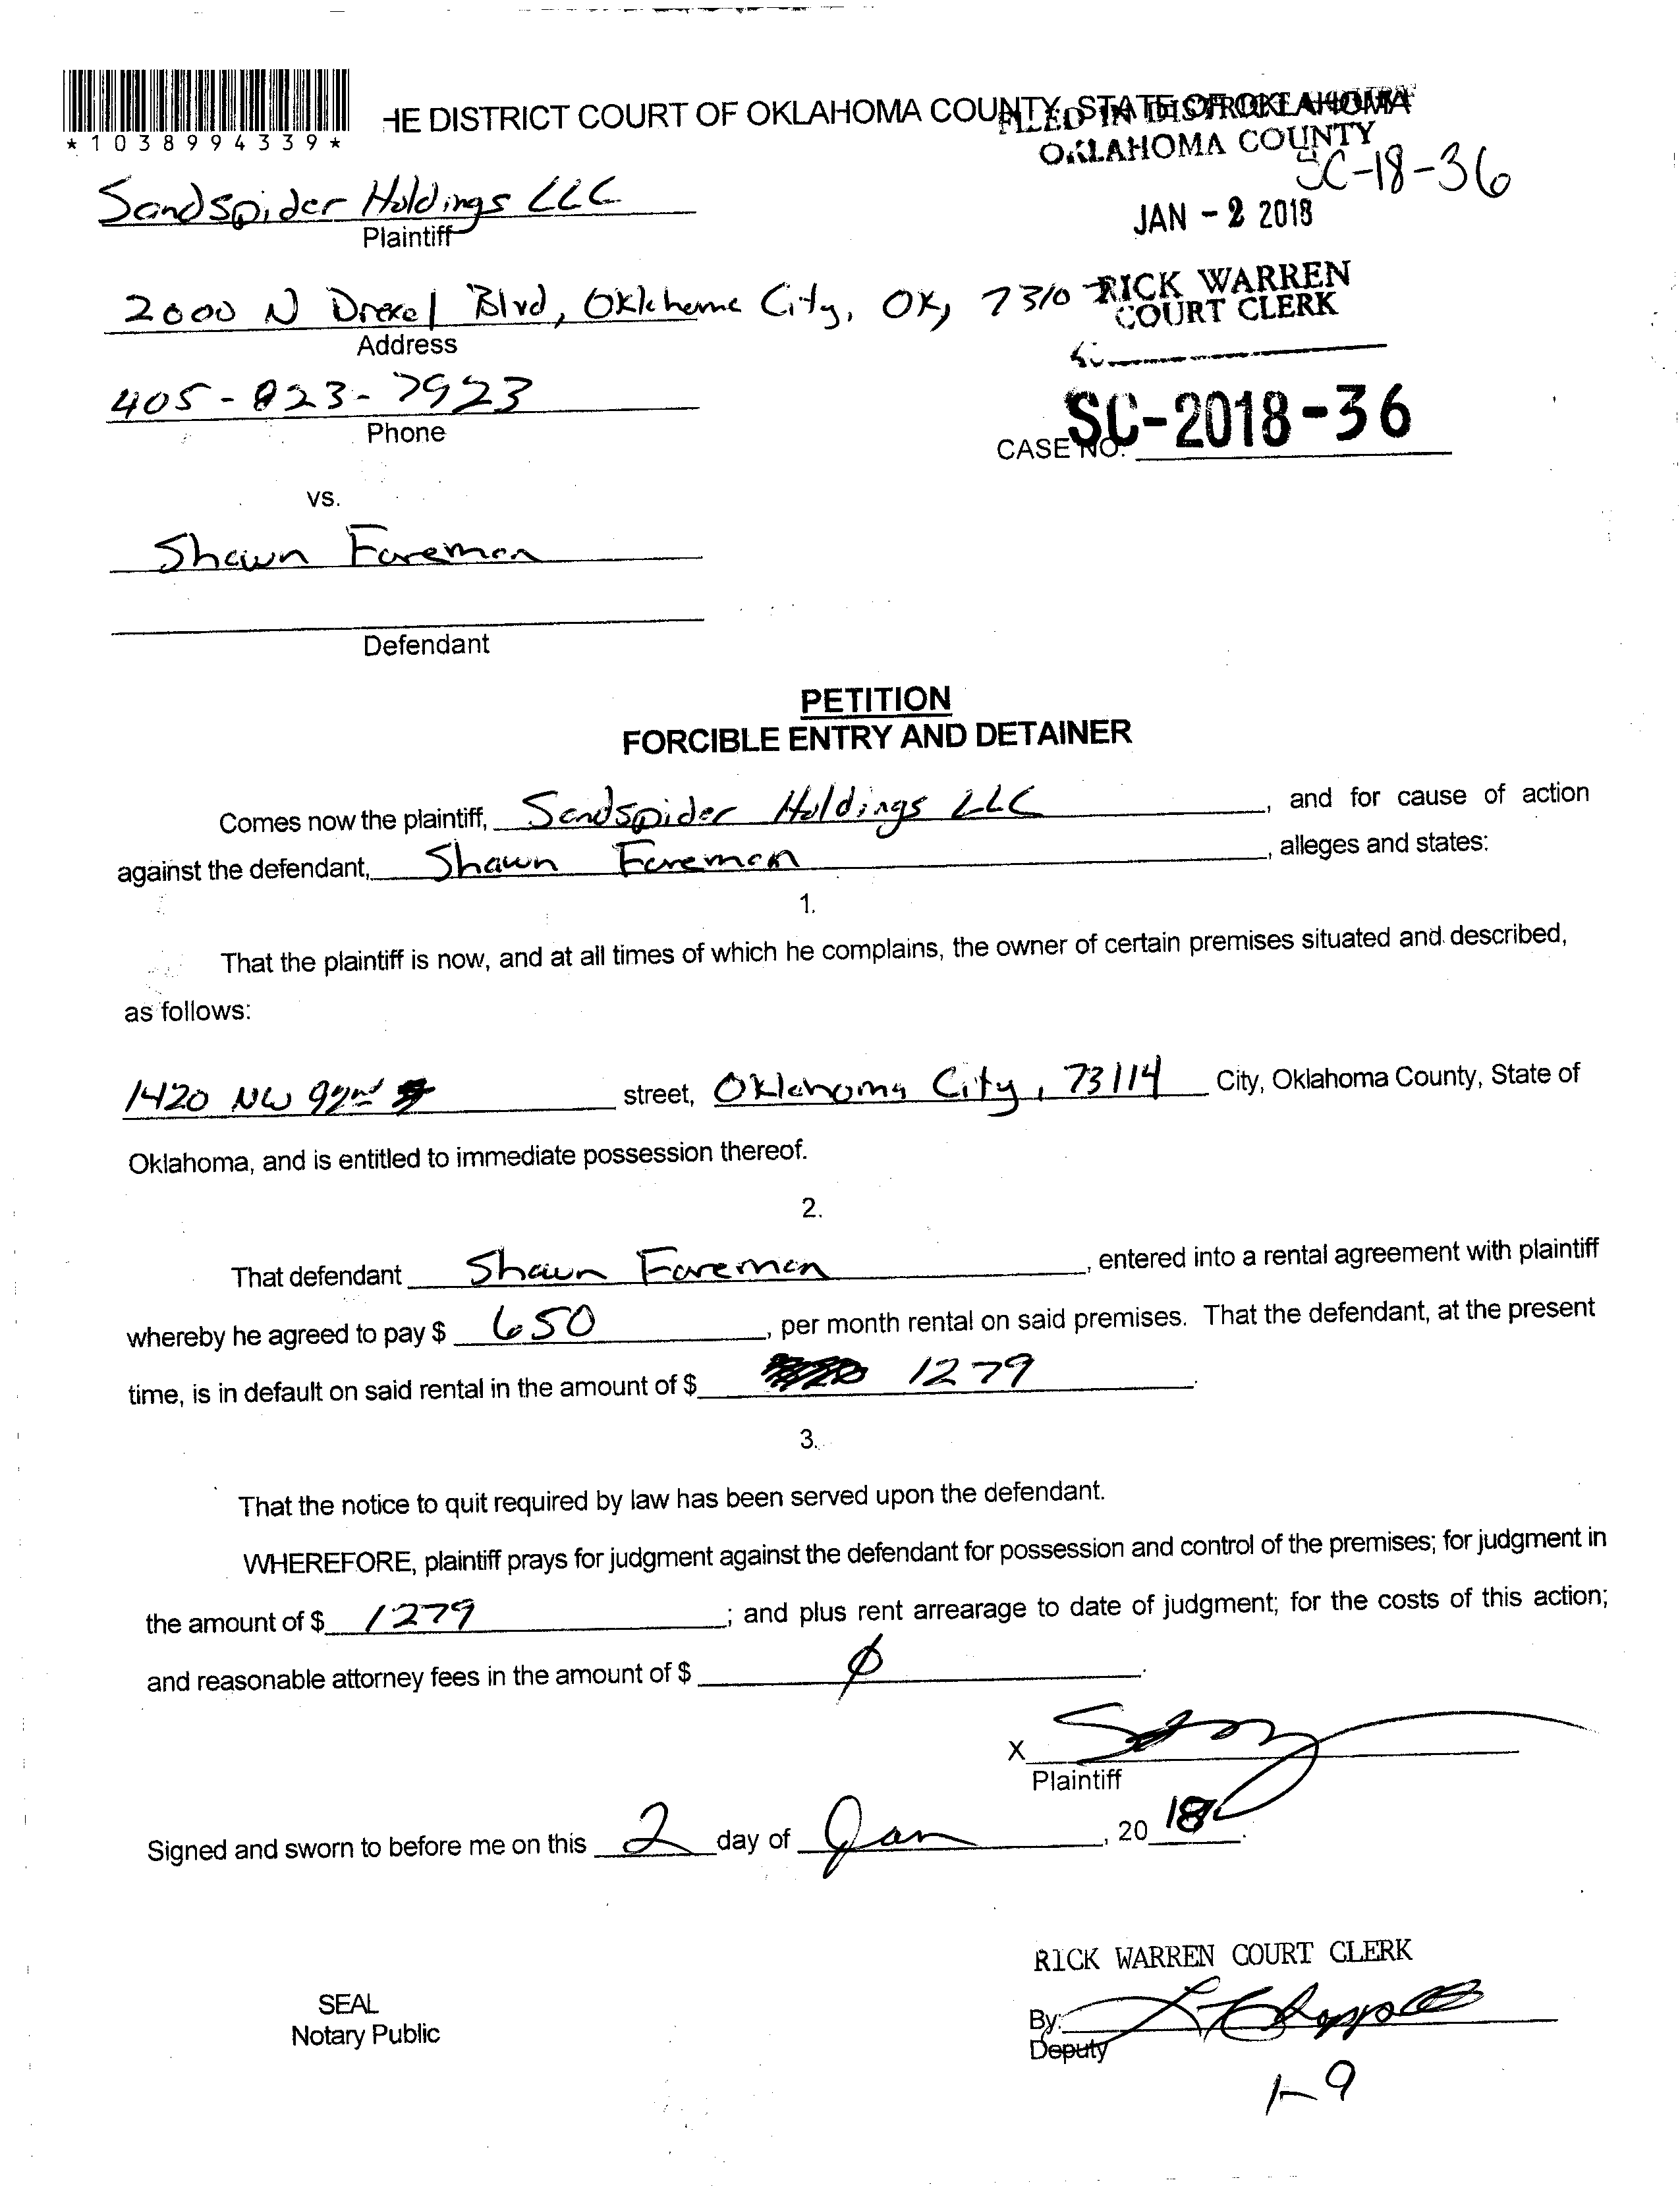 *1038994339*
HE DISTRICT COURT OF OKLAHOMA COUNTY, STATE OF OKLAHOMA
FILED IN DISTRICT COURT
OKLAHOMA COUNTY
SC-18-36
Sandspider Holdings LLC
Plaintiff
JAN - 2 2018
2000 N Drexel Blvd, Oklahoma City, OK, 7310
RICK WARREN
COURT CLERK
Address
405-823-7923
Phone
CASE NO. SC-2018-36
vs.
Shawn Foreman
Defendant
PETITION
FORCIBLE ENTRY AND DETAINER
Comes now the plaintiff, Sandspider Holdings LLC, and for cause of action
against the defendant, Shawn Foreman, alleges and states:
1.
That the plaintiff is now, and at all times of which he complains, the owner of certain premises situated and described,
as follows:
1420 NW 92nd street, Oklahoma City, 73114 City, Oklahoma County, State of
Oklahoma, and is entitled to immediate possession thereof.
2.
That defendant Shawn Foreman, entered into a rental agreement with plaintiff
whereby he agreed to pay $ 650, per month rental on said premises. That the defendant, at the present
time, is in default on said rental in the amount of $ 1279.
3.
That the notice to quit required by law has been served upon the defendant.
WHEREFORE, plaintiff prays for judgment against the defendant for possession and control of the premises; for judgment in
the amount of $ 1279; and plus rent arrearage to date of judgment; for the costs of this action;
and reasonable attorney fees in the amount of $ ∅.
X
Plaintiff
Signed and sworn to before me on this 2 day of Jan, 2018.
RICK WARREN COURT CLERK
SEAL
Notary Public
By:
Deputy
1-9